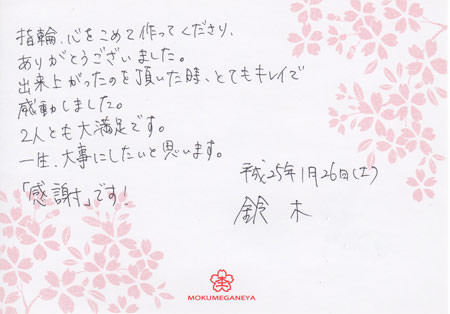 指輪、心をこめて作ってくださり、
ありがとうございました。
出来上がったのを頂いた時、とてもキレイで
感動しました。
2人とも大満足です。
一生、大事にしたいと思います。
「感謝」です!
平成25年1月26日(土)
鈴木
MOKUMEGANEYA